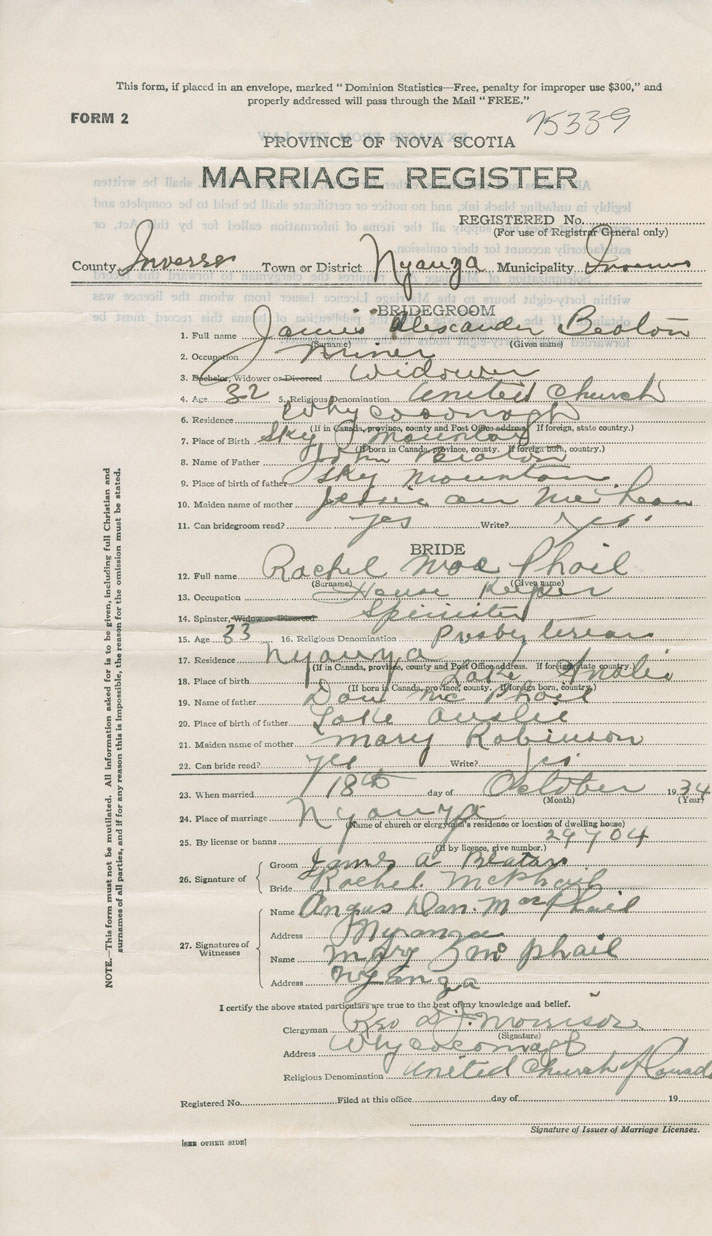 This form, if placed in an envelope, marked "Dominion Statistics—Free, penalty for improper use $300," and
properly addressed will pass through the Mail "FREE."
FORM 2
75339
PROVINCE OF NOVA SCOTIA
MARRIAGE REGISTER
REGISTERED No.
(For use of Registrar General only)
County Inverness Town or District Nyanza Municipality Inverness
BRIDEGROOM
1. Full name James Alexander Beaton
(Surname) (Given name)
2. Occupation Miner
3. Bachelor, Widower or Divorced Widower
4. Age 32 5. Religious Denomination United Church
6. Residence Whycocomagh
(If in Canada, province, county and Post Office address. If foreign, state country.)
7. Place of Birth Sky Mountain
(If born in Canada, province, county. If foreign born, country.)
8. Name of Father John Beaton
9. Place of birth of father Sky Mountain
10. Maiden name of mother Jessie Ann McLean
11. Can bridegroom read? Yes Write? Yes.
BRIDE
12. Full name Rachel MacPhail
(Surname) (Given name)
13. Occupation House Keeper
14. Spinster, Widow or Divorced Spinister
15. Age 33 16. Religious Denomination Presbyterian
17. Residence Nyanza
(If in Canada, province, county and Post Office address. If foreign, state country.)
18. Place of birth Lake Anslie
(If born in Canada, province, county. If foreign born, country.)
19. Name of father Dan McPhail
20. Place of birth of father Lake Anslie
21. Maiden name of mother Mary Robinson
22. Can bride read? Yes Write? Yes
23. When married 18th day of October 1934
(Month) (Year)
24. Place of marriage Nyanza
(Name of church or clergyman's residence or location of dwelling house)
25. By license or banns 29704
(If by licence, give number.)
26. Signature of
Groom James A Beaton
Bride Rachel McPhail
27. Signatures of Witnesses
Name Angus Dan MacPhail
Address Nyanza
Name Mary McPhail
Address Nyanza
I certify the above stated particulars are true to the best of my knowledge and belief.
Clergyman Rev Morrison
(Signature)
Address Whycocomagh
Religious Denomination United Church of Canada
Registered No. Filed at this office day of 19
Signature of Issuer of Marriage Licenses.
[SEE OTHER SIDE]
NOTE.—This form must not be mutilated. All information asked for is to be given, including full Christian and
surnames of all parties, and if for any reason this is impossible, the reason for the omission must be stated.